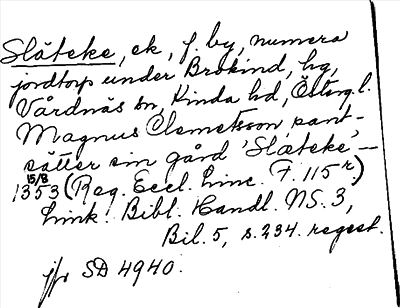 Släteke, ek, f. by, numera
jordtorp under Brokind, hg,
Vårdnäs sn, Kinda hd, Östergl.
Magnus Clemetsson pant-
sätter sin gård 'Slæteke',—
15/8
1353 (Reg. Eccl. Linc. F. 115r)
Link. Bibl. Handl. NS. 3,
Bil. 5, s. 234. regest.
jfr SD 4940.